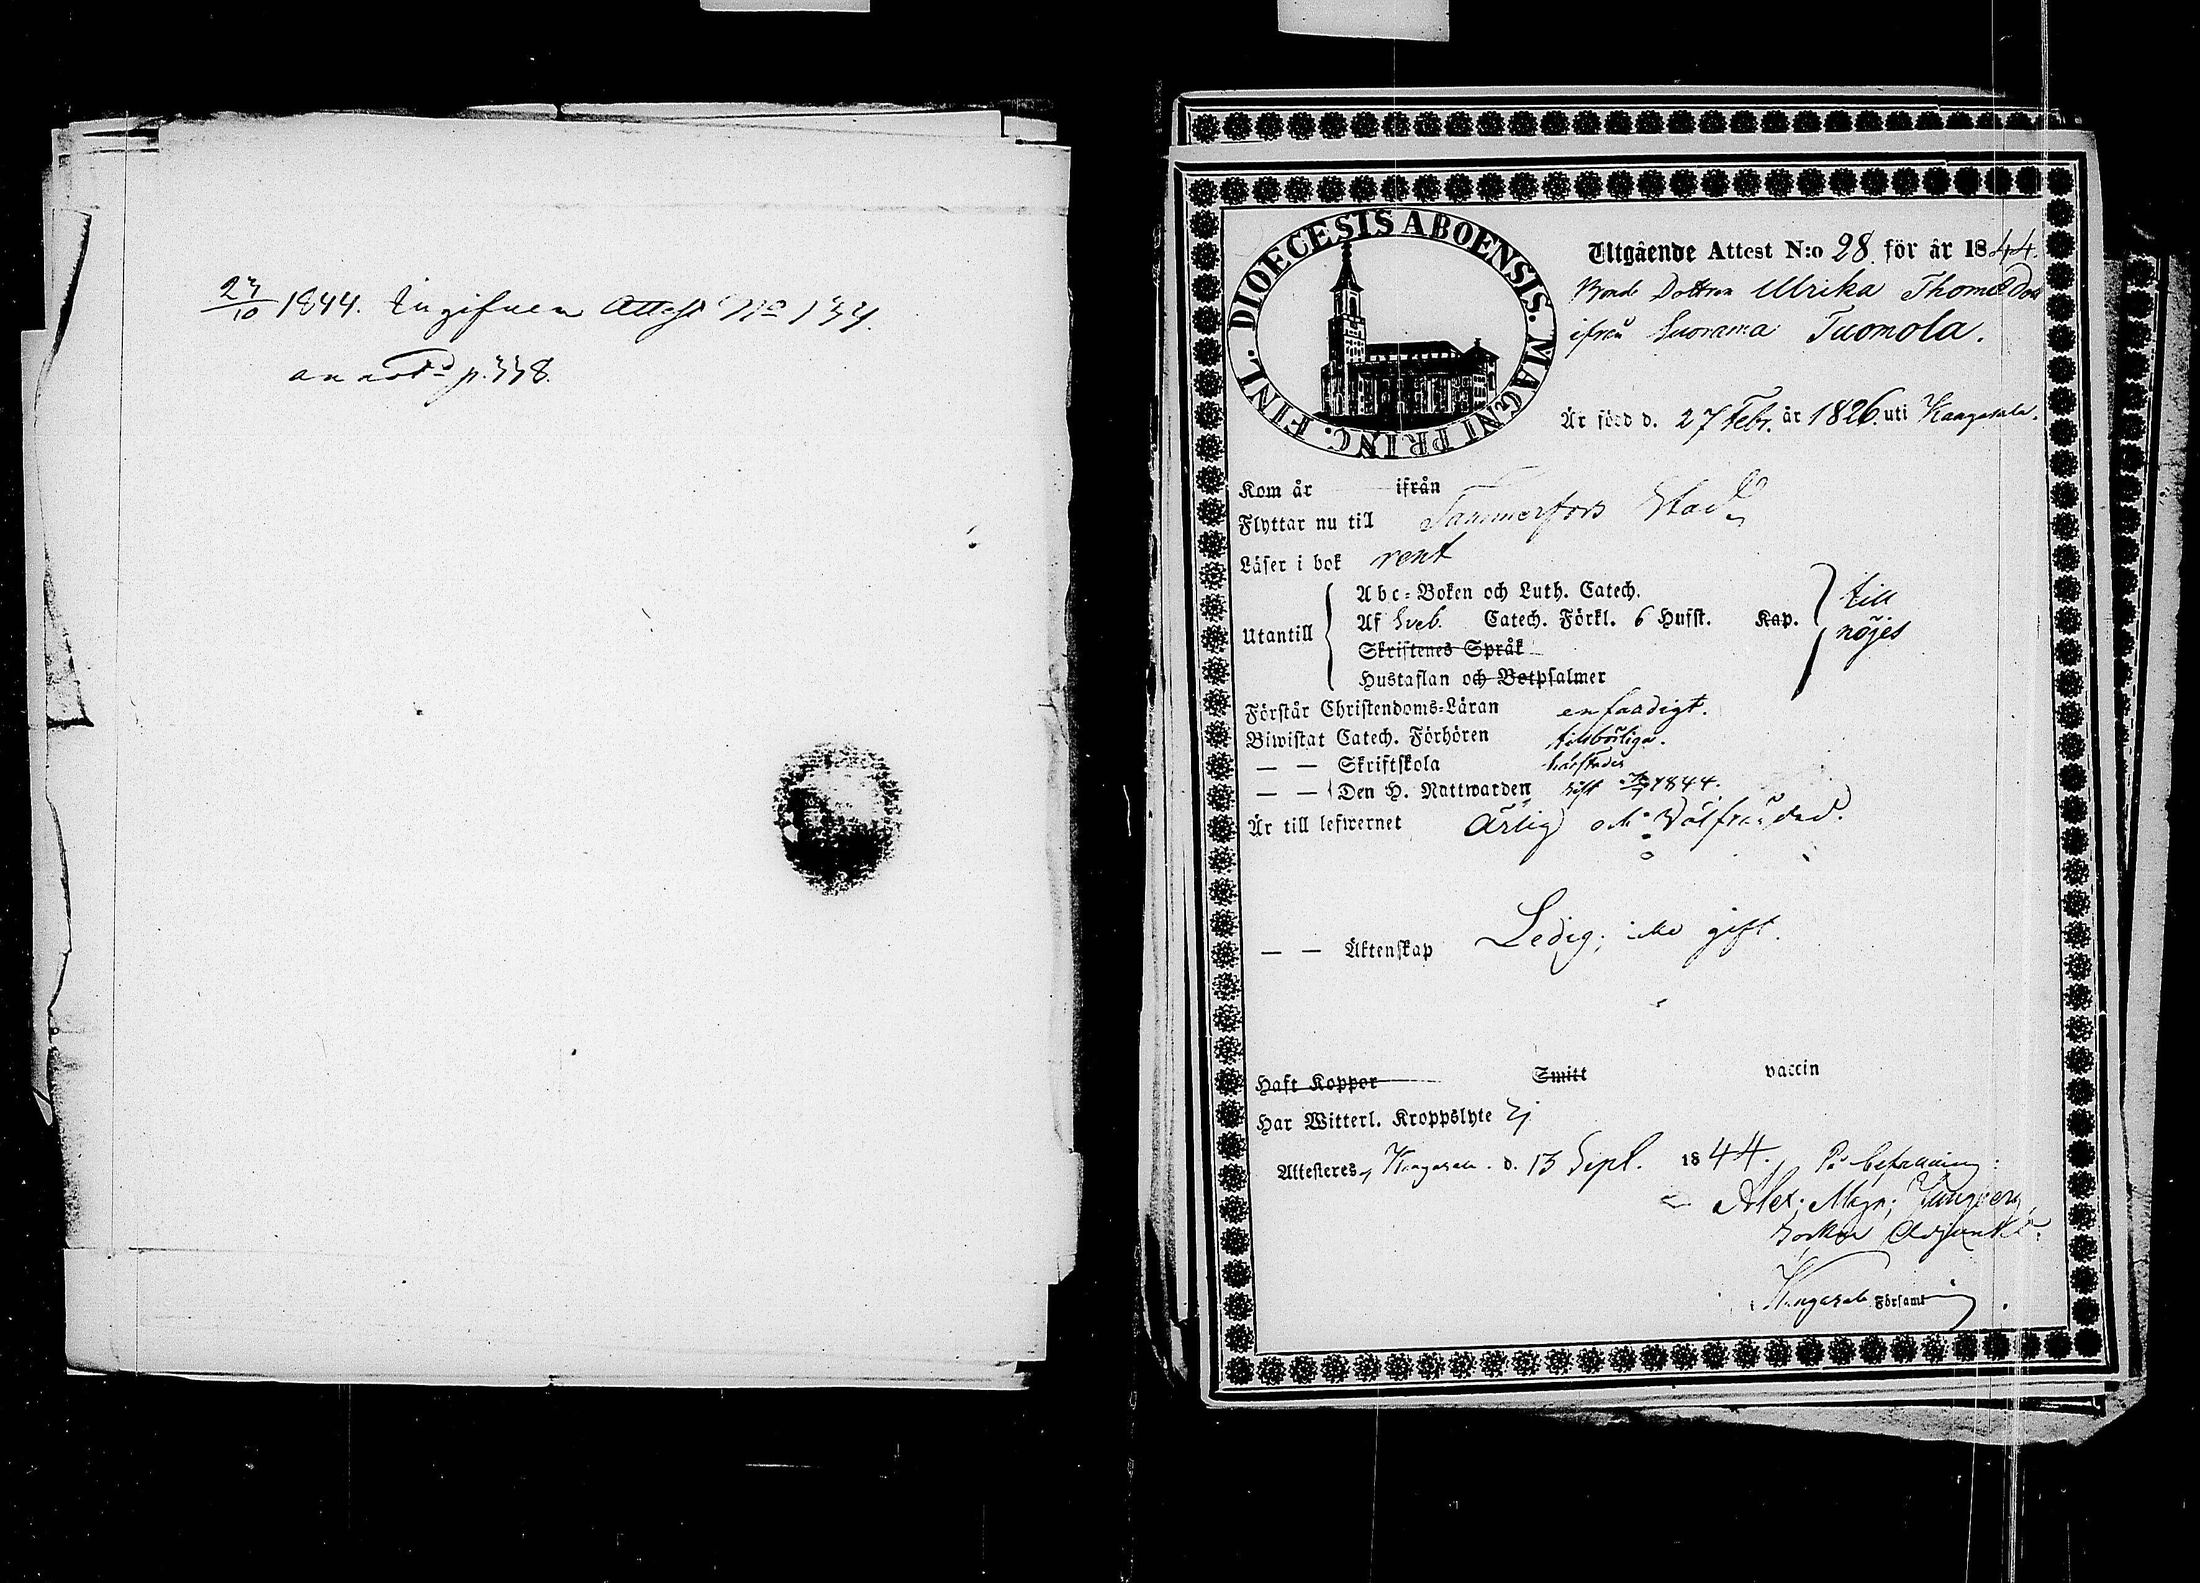 23/10 1844. Ingifven Attest No 134.
annotd p. 338.
DIOECESIS ABOENSIS. MAGNI PRINC. FINL.
Utgående Attest N:o 28 för år 1844.
Bonde Dottren Ulrika Thomædotr
ifrån Suorama Tuomola.
Är född d. 27 Febr. år 1826 uti Kangasala.
Kom år ifrån
Flyttar nu till Tammerfors Stad
Läser i bok rent
Abc-Boken och Luth. Catech.
Af Sveb. Catech. Förkl. 6 Hufst. Kap.
Utantill
Skriftenes Språk
Hustaflan och Botpsalmer
till
nöjes
Förstår Christendoms-Läran enfaldigt.
Biwistat Catech. Förhören tillbörligen.
— — Skriftskola härstädes
— — Den H. Nattwarden sist 1844.
Är till lefwernet Ärlig och Välfräjdad.
— — Äktenskap Ledig, icke gift.
Haft Koppor Smitt vaccin
Har Witterl. Kroppslyte Ej
Attesteres, Kangasala d. 13 Sept. 1844. På befallning:
Alex; Magn; Ljungberg
Sockne Adjunkt.
Kangasala Församl